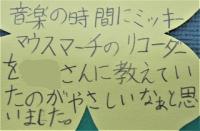 音楽の時間にミッキー
マウスマーチのリコーダー
を さんに教えてい
たのがやさしいなぁと思
いました。